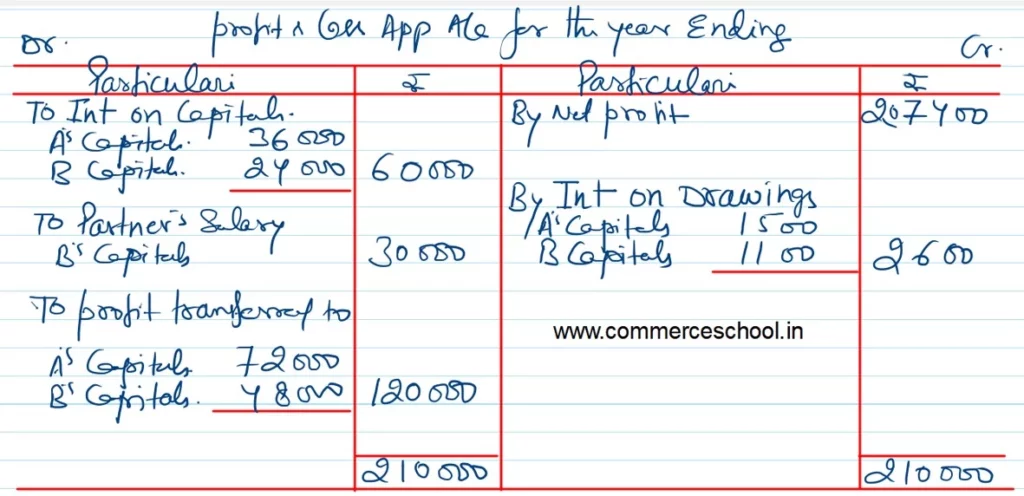 profit & Loss App A/c for the year Ending
Dr. Cr.
Particulars ₹ Particulars ₹
To Int on Capitals. By Net profit 207400
A's Capitals. 36000
B Capitals. 24000 60000
By Int on Drawings
To Partner's Salary A's Capitals 1500
B's Capitals 30000 B Capitals 1100 2600
To profit transferred to
www.commerceschool.in
A's Capitals 72000
B's Capitals. 48000 120000
210000 210000